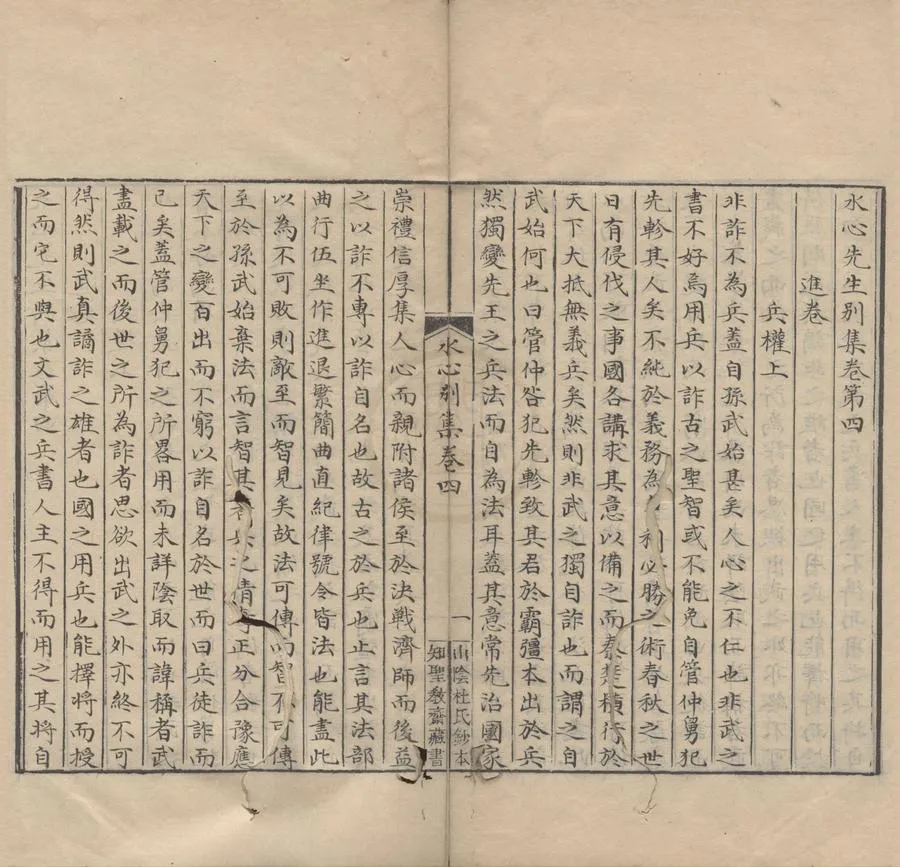 水心先生別集卷第四
進卷
兵權上
非詐不為兵蓋自孫武始甚矣人心之不仁也非武之
書不好焉用兵以詐古之聖智或不能免自管仲舅犯
先軫其人矣不純於義務為利必勝之術春秋之世
日有侵伐之事國各講求其意以備之而秦楚橫行於
天下大抵無義兵矣然則非武之獨自詐也而謂之自
武始何也曰管仲咎犯先軫致其君於霸彊本出於兵
然獨變先王之兵法而自為法耳蓋其意常先治國家
水心別集卷四
一
山陰杜氏鈔本
知聖教齋藏書
崇禮信厚集人心而親附諸侯至於決戰濟師而後益
之以詐不專以詐自名也故古之於兵也止言其法部
曲行伍坐作進退繁簡曲直紀律號令皆法也能盡此
以為不可敗則敵至而智見矣故法可傳以智不可傳
至於孫武始棄法而言智其於兵之情奇正分合豫應
天下之變百出而不窮以詐自名於世而曰兵徒詐而
已矣蓋管仲舅犯之所畧用而未詳陰取而諱稱者武
盡載之而後世之所為詐者思欲出武之外亦終不可
得然則武真譎詐之雄者也國之用兵也能擇將而授
之而它不與也文武之兵書人主不得而用之其將自